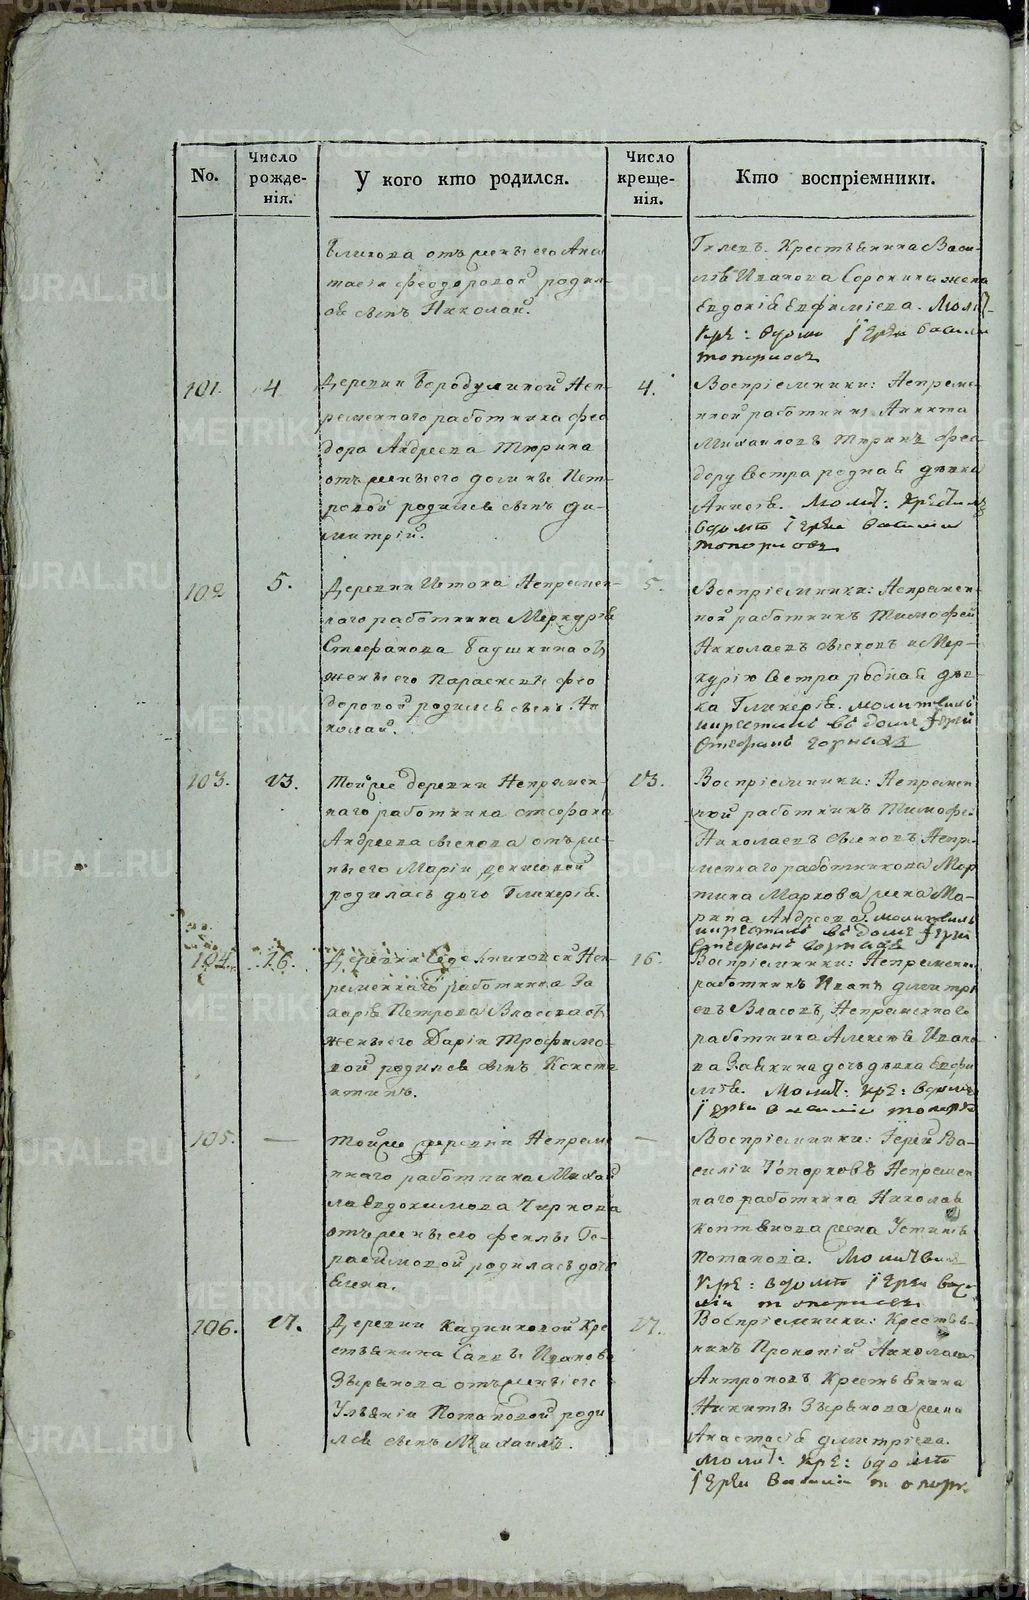 No.
Число рожде-нія.
У кого кто родился.
Число креще-нія.
Кто воспріемники.
отъ жены его Ана
стасіи Феодоровой родил
ся сынъ Николай.
Крестьянина Васи-
лія Иванова Сорокина жена
Евдокія Евфиміева. Молит:
Кре: въдоми Іерей Василіи
топорковъ
101.
4
Деревни Бородулиной Неп
ременнаго работника Фео
дора Андреева Тюрина
отъ жены его Пет
ровой родился сынъ Ди-
митрій.
4.
Воспріемники: Непреме-
нной работникъ Никита
Михаиловъ Тюринъ Фео
дору Сестра родная девка
Анисія. Молит: Крестилъ
вдомѣ Іерей Василіи
топорковъ
102
5.
Деревни Истока Непремен-
наго работника Меркурія
Стефанова отъ
жены его Параскевы Фео
доровой родился сынъ Ни
колай.
5.
Воспріемники: Непремен-
ной работникъ Тимофей
Николаевъ и Мер-
курію Сестра родная дев-
ка Гликерія. молитвилъ
икрестилъ въ доме Іерей
Стефанъ
103.
13.
Тойже деревни Непремен-
наго работника Стефана
Андреева отъ же-
ны его Маріи Денисовой
родилась дочь Гликерія.
13.
Воспріемники: Непремен
ной работникъ Тимофей
Николаевъ Непре-
меннаго работникова Мар
тина Маркова жена Ма-
рина Андреева. молитвилъ
икрестилъ въ доме Іерей
Стефанъ
104.
16.
Деревни Седельниковской Неп
ременнаго работника За
харія Петрова Власова отъ
жены его Даріи Трофимо-
вой родился сынъ Конста
нтинъ.
16.
Воспріемники: Непременн
работникъ Иванъ Дмитрі
евъ Власовъ, Непременнаго
работника Алексея Ивано
ва Заикина дочь девка Евфи
мія. Молит: кре: вдоме
Іерей Василіи топорк
105.
—
Тойже деревни Непреме
ннаго работника Михай
ла Евдокимова Чиркова
отъ жены его Феклы Ге-
расимовой родилась дочь
Елена.
—
Воспріемники: Іерей Ва-
силіи Топорковъ Непремен
наго работника Николая
Коптякова жена Устинія
Потапова. Молитвил
Кре: вдомѣ Іерей Васи
ліи топорковъ
106.
17.
Деревни Кадниковой Кре
стьянина Савы Иванова
Зырянова отъ жены его
Ульяніи Потаповой роди
лся сынъ Михаилъ.
17.
Воспріемники: Крестья-
нинъ Прокопій Николаев
Антроповъ Крестьянина
Никиты Зырянова жена
Анастасія Дмитріева.
Молит: Кре: вдомѣ
Іерей Василіи топорк.
METRIKI.GASO-URAL.RU